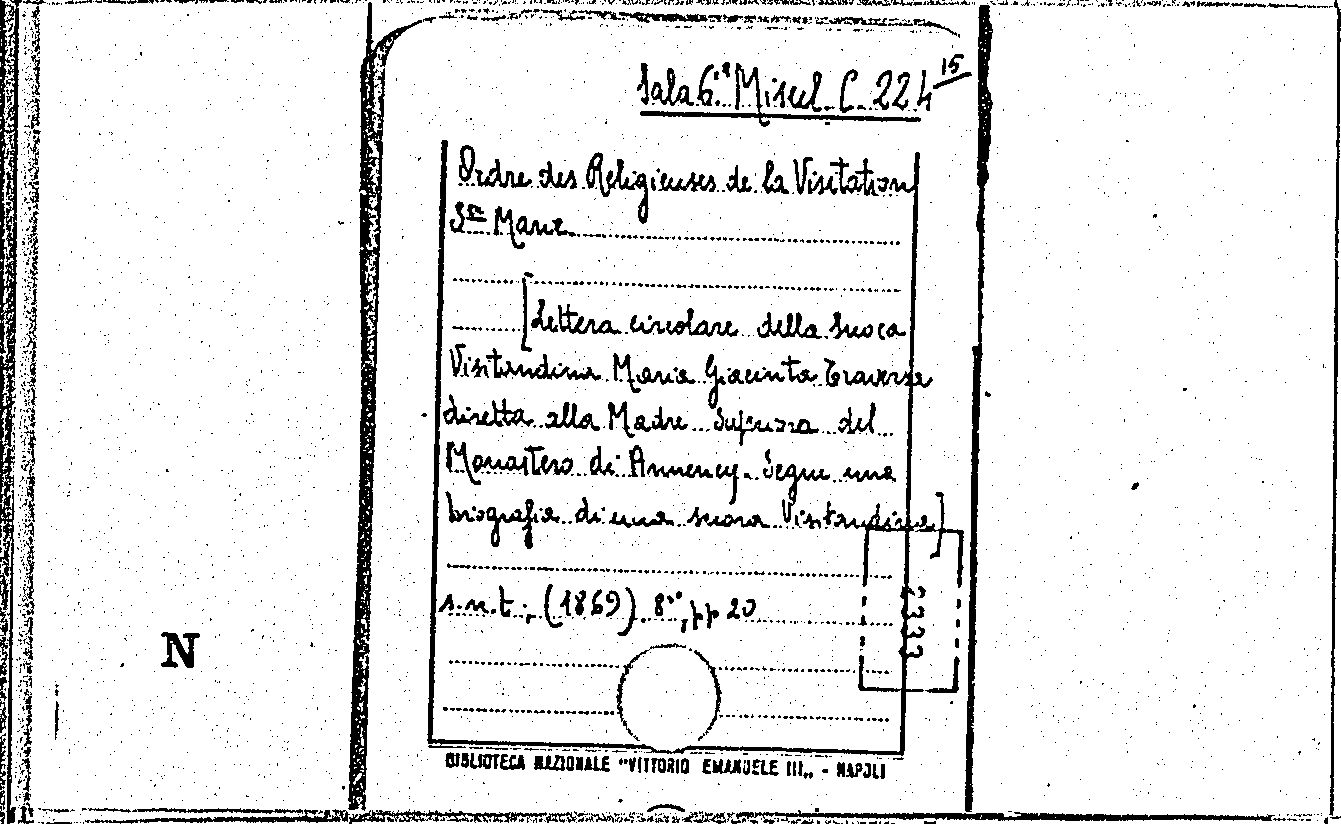 Sala 6.ª Miscel. C. 224 15
Ordre des Religieuses de la Visitation
Ste Marie
[Lettera circolare della Suora
Visitandina Maria Giacinta Traversa
diretta alla Madre Superiora del
Monastero di Annency. Segue una
biografia di una suora Visitandina]
s.n.t., (1869). 8°, pp 20
N
BIBLIOTECA NAZIONALE "VITTORIO EMANUELE III„ - NAPOLI